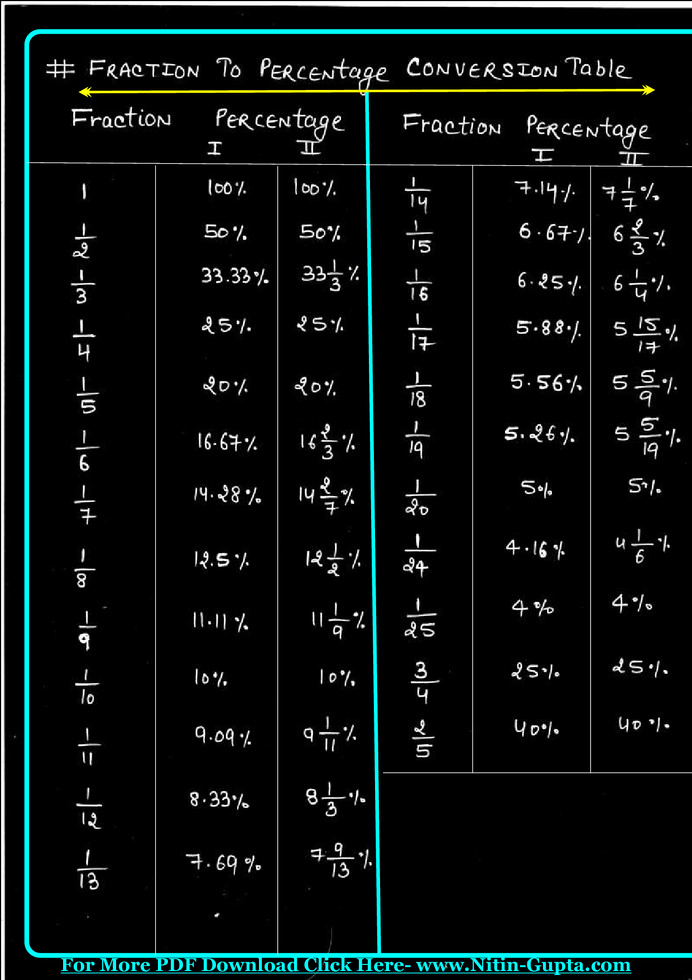 # FRACTION TO PERCENtage CONVERSION Table
Fraction PERCENtage
I II
1 100% 100%
1/2 50% 50%
1/3 33.33% 33 1/3 %
1/4 25% 25%
1/5 20% 20%
1/6 16.67% 16 2/3 %
1/7 14.28% 14 2/7 %
1/8 12.5% 12 1/2 %
1/9 11.11% 11 1/9 %
1/10 10% 10%
1/11 9.09% 9 1/11 %
1/12 8.33% 8 1/3 %
1/13 7.69% 7 9/13 %
Fraction PERCENtage
I II
1/14 7.14% 7 1/7 %
1/15 6.67% 6 2/3 %
1/16 6.25% 6 1/4 %
1/17 5.88% 5 15/17 %
1/18 5.56% 5 5/9 %
1/19 5.26% 5 5/19 %
1/20 5% 5%
1/24 4.16% 4 1/6 %
1/25 4% 4%
3/4 25% 25%
2/5 40% 40%
For More PDF Download Click Here- www.Nitin-Gupta.com